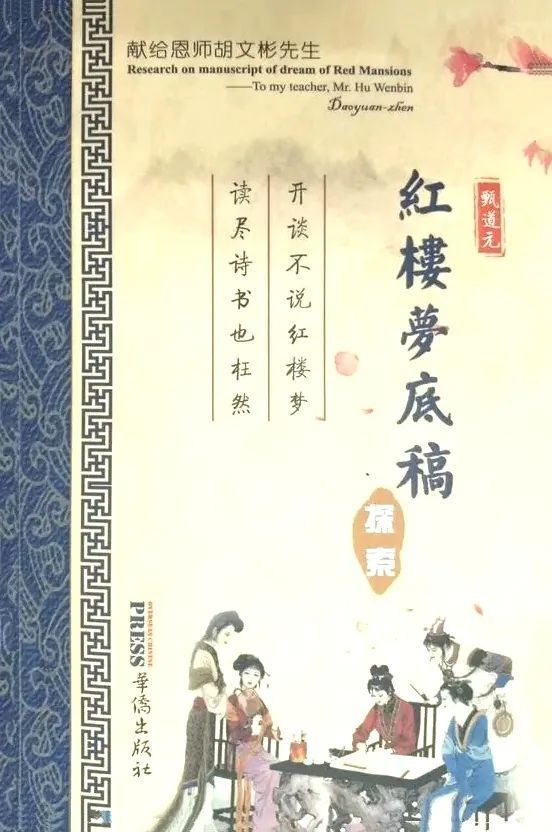 献给恩师胡文彬先生
Research on manuscript of dream of Red Mansions
——To my teacher, Mr. Hu Wenbin
Daoyuan-zhen
甄道元
紅樓夢底稿
探索
开谈不说红楼梦
读尽诗书也枉然
OVERSEAS CHINESE
PRESS
華僑出版社